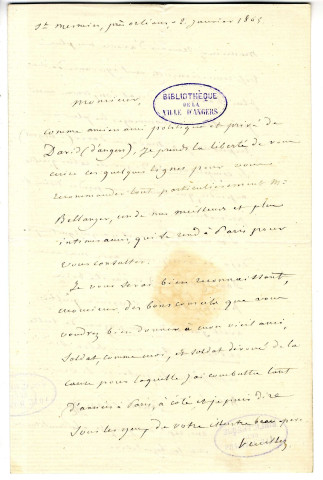 St Mesmin, près orléans, 2 janvier 1865
Monsieur,
BIBLIOTHÈQUE
DE LA
VILLE D'ANGERS
comme ancien ami politique et privé de
David (d'angers), je prends la liberté de vous
écrire ces quelques lignes pour vous
recommander tout particulièrement Mr
Bellanger, un de nos meilleurs et plus
intimes amis, qui se rend à Paris pour
vous consulter.
Je vous serai bien reconnaissant,
monsieur des bons conseils que vous
voudrez bien donner à mon vieil ami,
soldat, comme moi, et soldat dévoué de la
cause pour laquelle j'ai combattu tant
d'années à Paris, à côté et je puis dire
sous les yeux de votre illustre beau-père